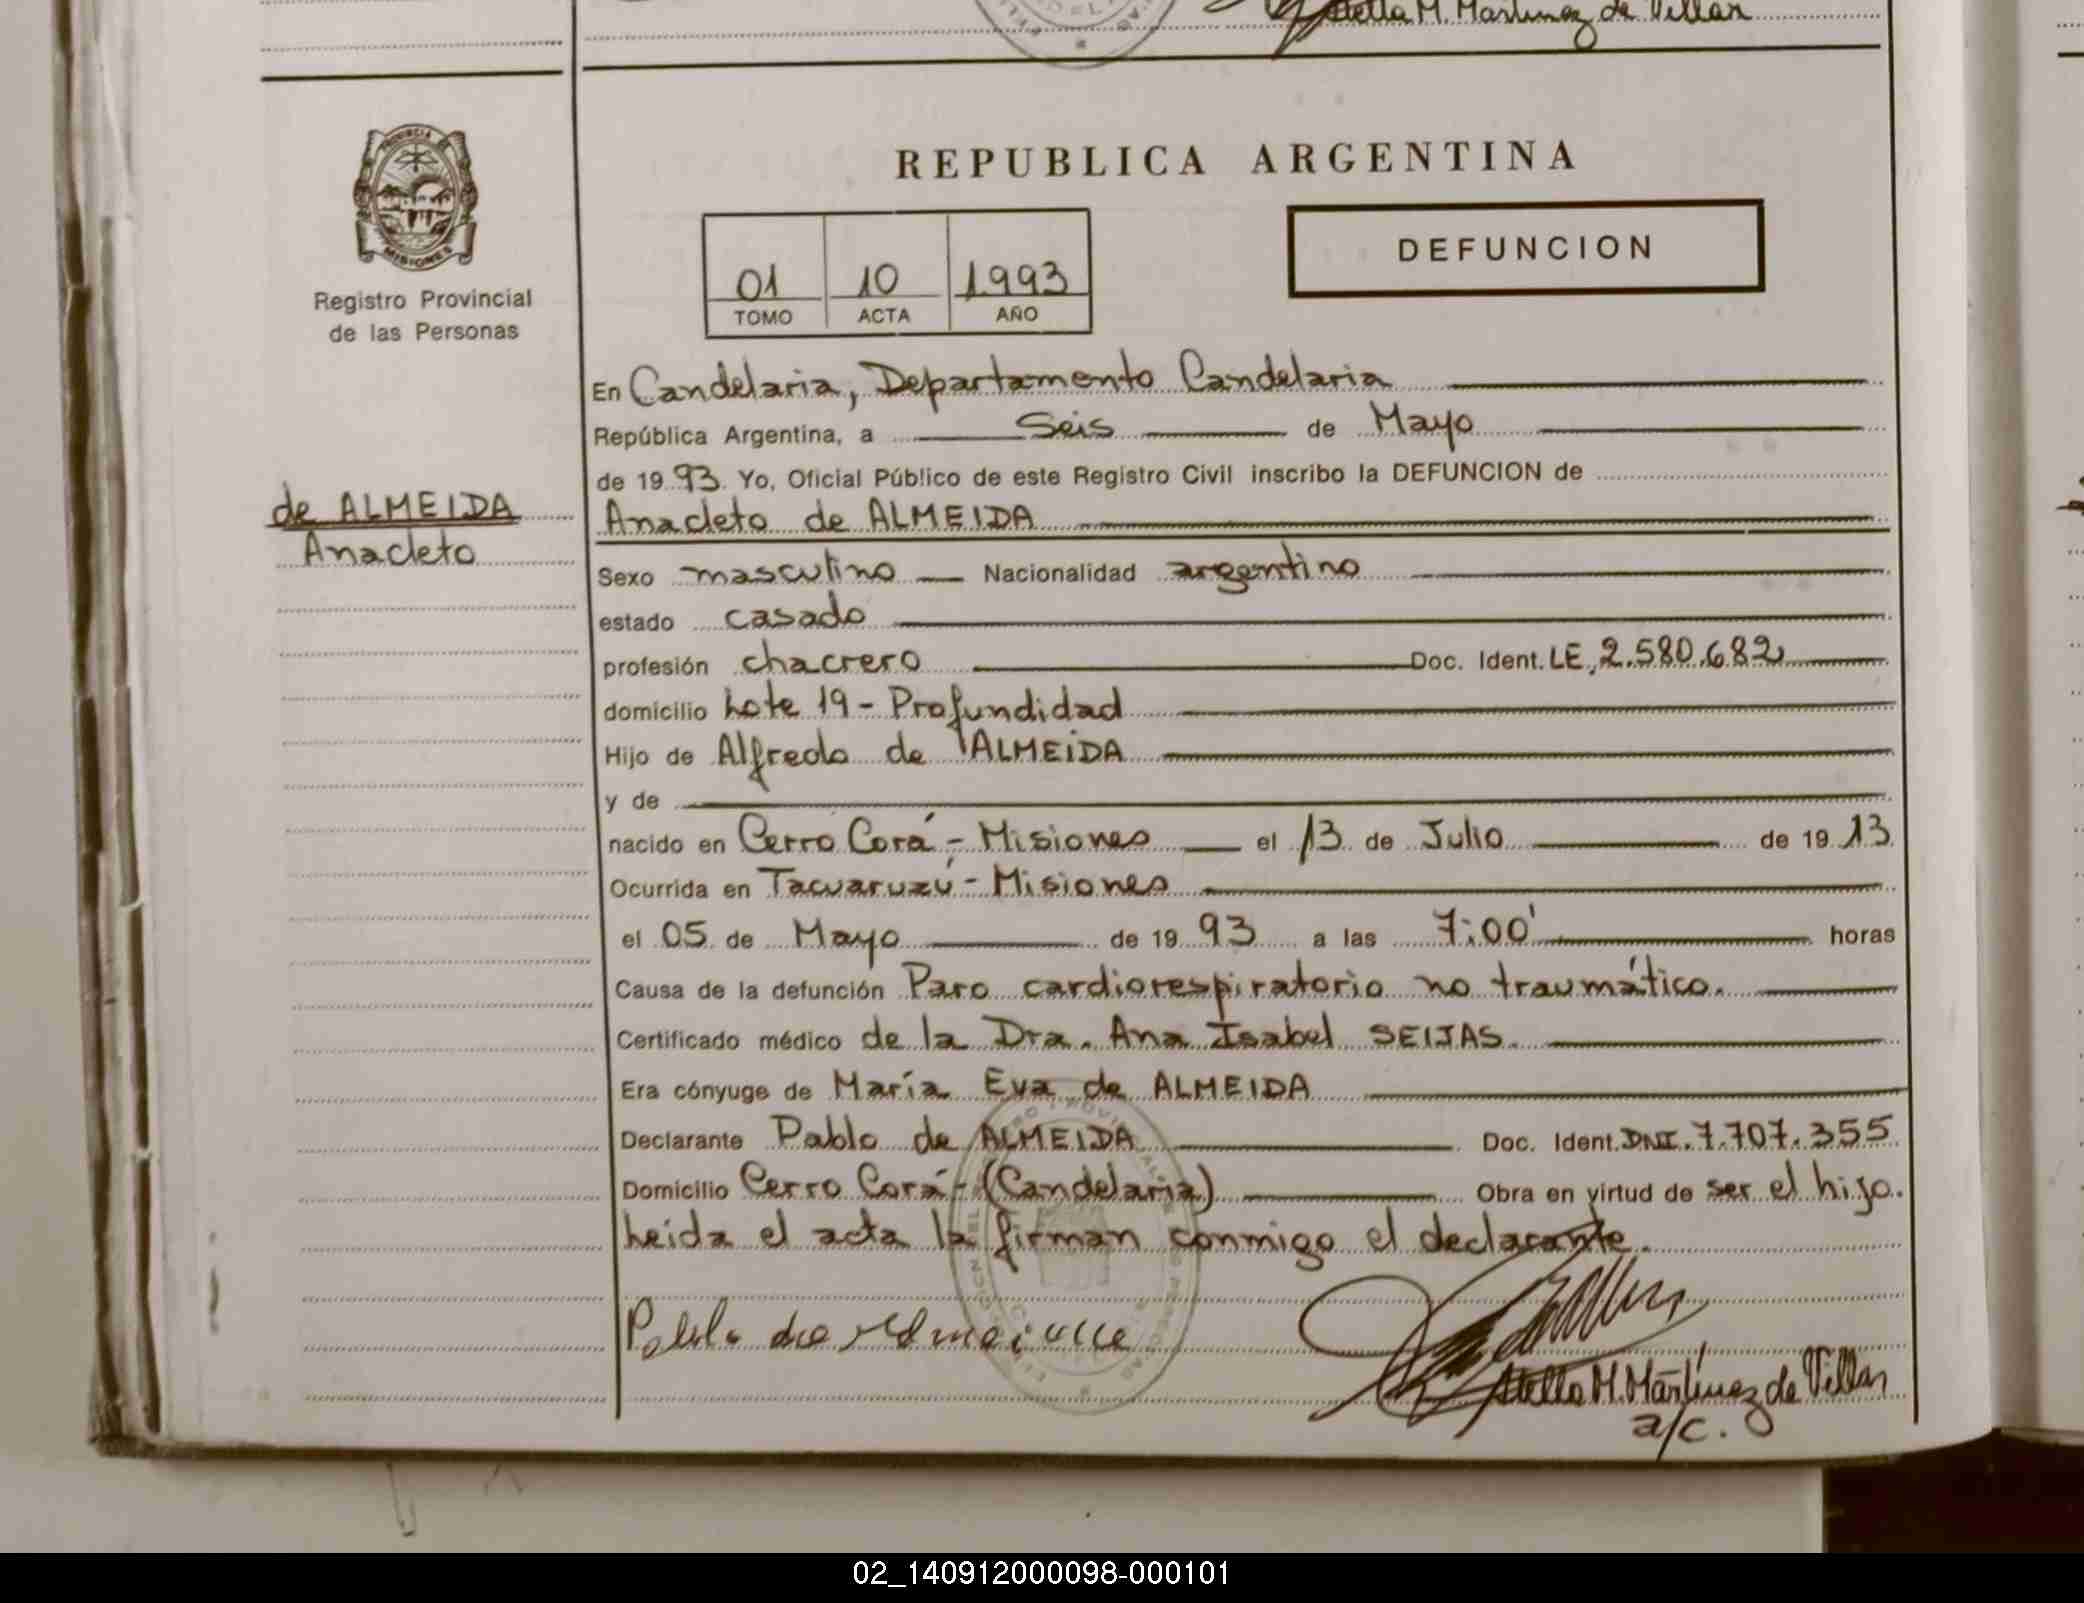 Stella M. Martinez de Villar
PROVINCIA
MISIONES
Registro Provincial
de las Personas
REPUBLICA ARGENTINA
01 10 1993
TOMO ACTA AÑO
DEFUNCION
En Candelaria, Departamento Candelaria
República Argentina, a Seis de Mayo
de 19 93. Yo, Oficial Público de este Registro Civil inscribo la DEFUNCION de
de ALMEIDA
Anacleto
Anacleto de ALMEIDA
Sexo masculino Nacionalidad argentino
estado casado
profesión chacrero Doc. Ident. LE, 2.580.682
domicilio Lote 19 - Profundidad
Hijo de Alfredo de ALMEIDA
y de
nacido en Cerro Corá - Misiones el 13 de Julio de 19 13
Ocurrida en Tacuaruzú - Misiones
el 05 de Mayo de 19 93 a las 7:00' horas
Causa de la defunción Paro cardiorespiratorio no traumático.
Certificado médico de la Dra. Ana Isabel SEIJAS.
Era cónyuge de María Eva de ALMEIDA
Declarante Pablo de ALMEIDA Doc. Ident. DNI. 7.707.355
Domicilio Cerro Corá - (Candelaria) Obra en virtud de ser el hijo.
Leida el acta la firman conmigo el declarante.
Pablo de Almeida
Stella M. Martínez de Villar
a/c.
02_140912000098-000101